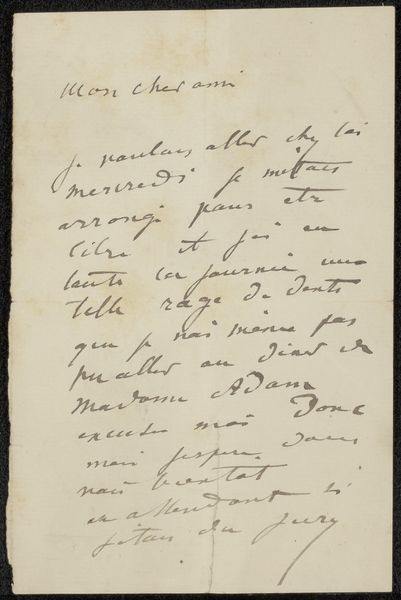 Mon cher ami
je voulais aller chez toi
mercredi je m'étais
arrangé pour etre
libre et j'ai eu
toute la journée une
telle rage de dents
que je n'ai même pas
pu aller au diner de
Madame Adam
excuse moi donc
mais j'espere
bientot
en attendant si
j'étais du jury